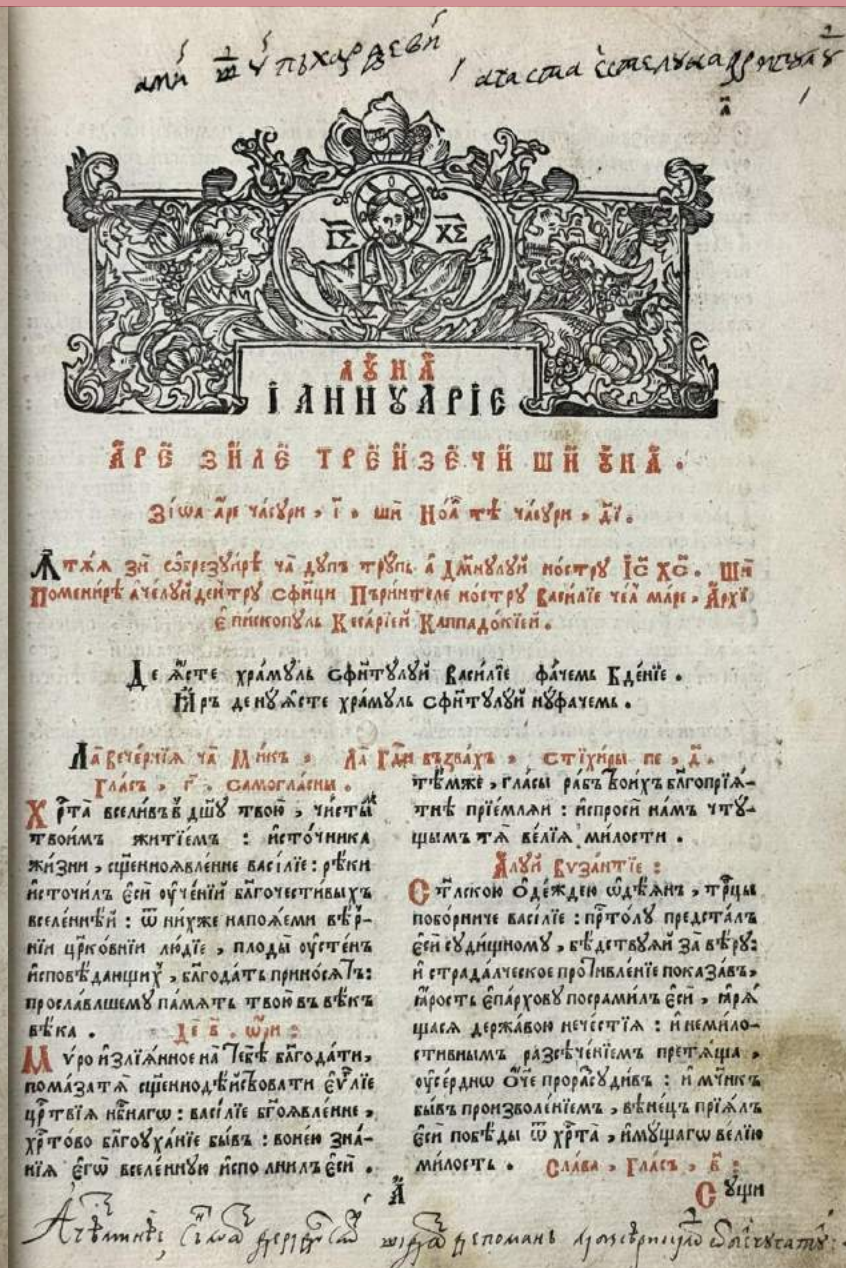 ІС ХС
ЛꙊНА
ІАННꙊАРІЕ
АРЕ ЗИЛЕ ТРЕЙЗЕЧИ ШИ ꙊНА.
Зіѡа аре чѧсури, і҃. ши Ноаптѣ чѧсури, д҃і.
зи ѡбрезуирѣ чѣ дупъ трупь а Дм҃нулуй нострꙋ Іс҃ Хс҃. Ши
Поменирѣ ачелуй динтру сфинци Пъринтеле нострꙋ Василіе чел маре, Архі
Епископуль Кесаріей Каппадокіей.
Де ꙗсте храмуль сфнтулуй Василіе фачемь Бденіе.
Иръ де ну ꙗсте храмуль сфнтулуй нуфачемь.
Ла Вечернія чѣ Микъ, Ла Гд҃и възвахъ, стіхиры пе, д҃.
Гласъ, г҃. самогласны.
Хрⷭ҇та вселивъ в дш҃у твою, чистымъ
твоимъ житіемъ : источника
жизни, сщ҃енноявленне василіе : рѣки
источилъ еси оученій бл҃гочестивыхъ
вселеннѣй : ѿ нихже напояеми вѣр-
ніи цр҃ковніи людіе, плоды оустенъ
исповѣдающихъ, бл҃годать приносятъ :
прославлшему память твою въ вѣкъ
вѣка. Де в҃. ѡри :
Мѵро изліянное на тебѣ бл҃годати,
помаза тѧ сщ҃еннодѣйствовати еѵⷢ҇ліе
црⷭ҇твія нбⷭ҇наго : василіе бг҃оявленне,
хрⷭ҇тово бл҃гоуханіе бывъ : вонею зна-
нія егѡ вселенную исполнилъ еси.
тѣмже, гласы рабъ твоихъ бл҃гопрія-
тнѣ пріемляй : испроси намъ чту-
щымъ тѧ велія милости.
Алуй Византіе :
Ст҃лскою одеждею ѡдѣянъ, трⷪ҇цы
поборниче василіе : прⷭ҇толу предсталъ
еси судищному, бѣдствуяй за вѣру :
и страдалческое противленіе показавъ,
ярость епархову посрамилъ еси, яря
щася державою нечестія : и немило-
стивнымъ разсѣченіемъ претяща,
оусерднѡ оч҃е проразсудивъ : и мч҃нкъ
бывъ произволеніемъ, вѣнецъ пріялъ
еси побѣды ѿ хрⷭ҇та, имущагѡ велію
милость. Слава, Гласъ, в҃ :
А҃
Сущи